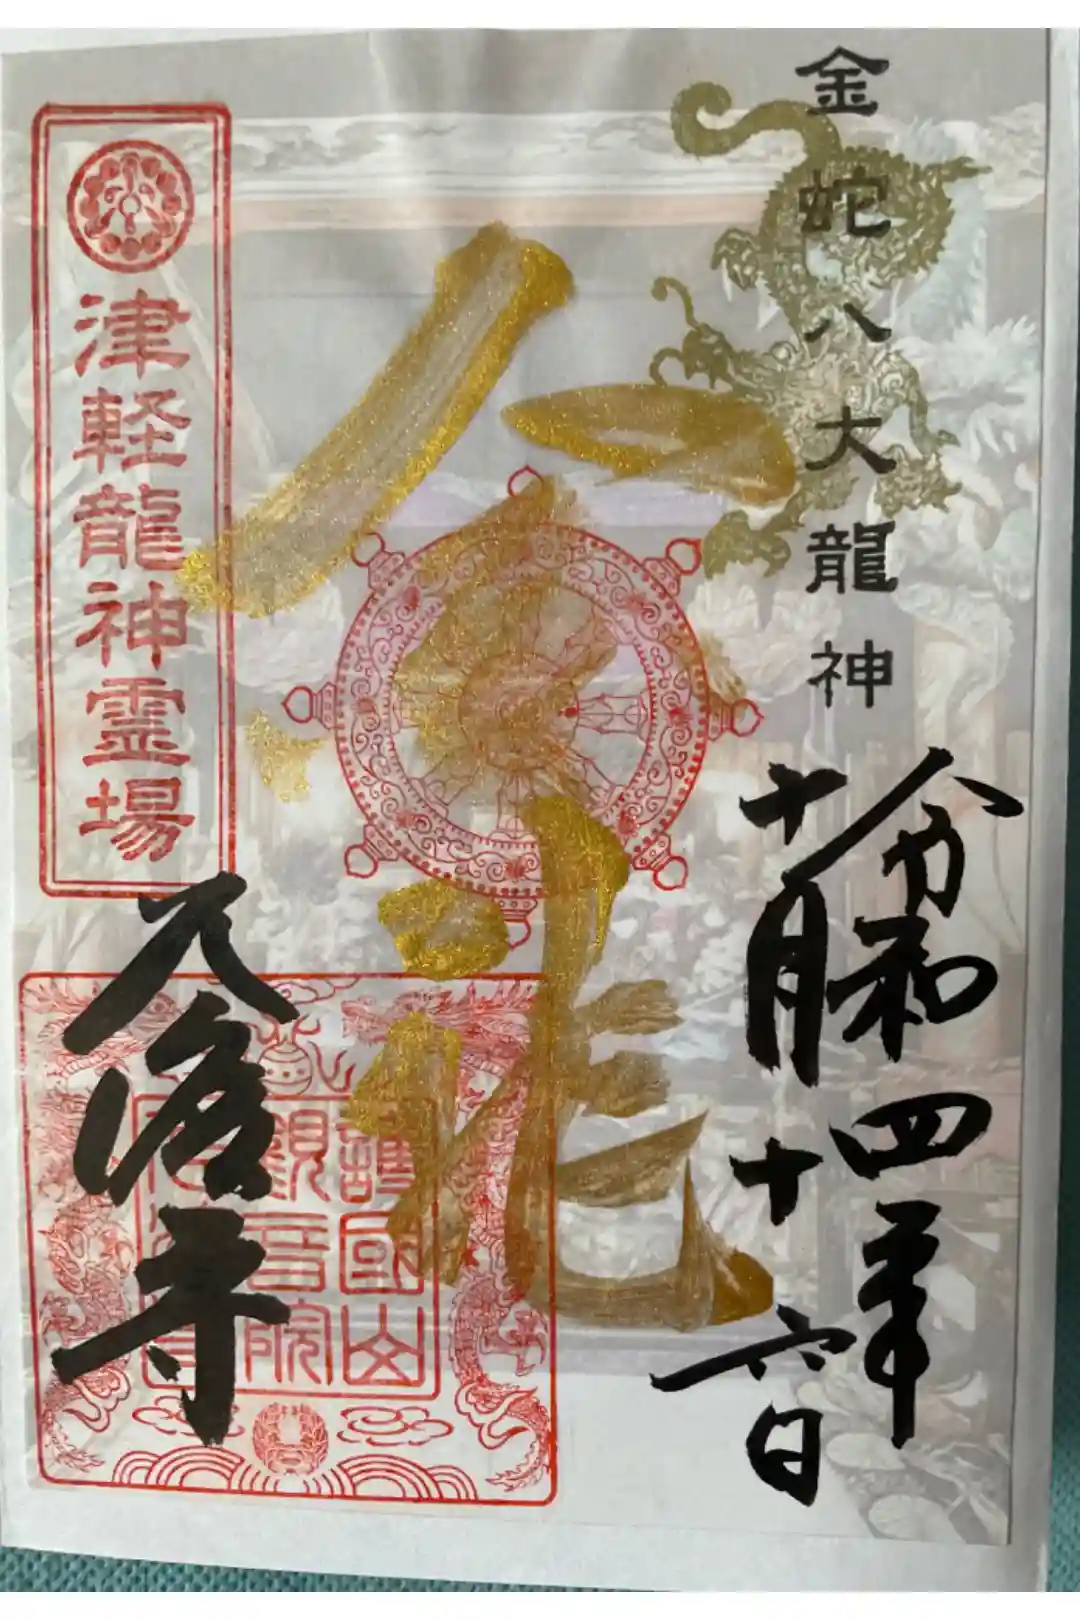 金蛇八大龍神
令和四年
十月十六日
津軽龍神霊場
久渡寺
護國山
觀音院